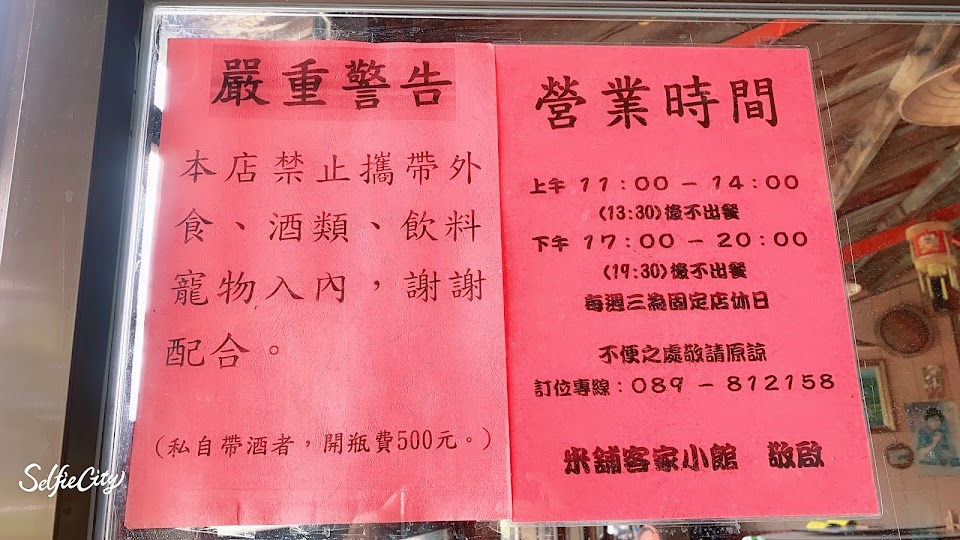 嚴重警告
本店禁止攜帶外
食、酒類、飲料
寵物入內，謝謝
配合。
(私自帶酒者，開瓶費500元。)
營業時間
上午 11：00 – 14：00
(13:30)後不出餐
下午 17：00 – 20：00
(19:30)後不出餐
每週三為固定店休日
不便之處敬請原諒
訂位專線：089 – 812158
米舖客家小館 敬啟
SelfieCity